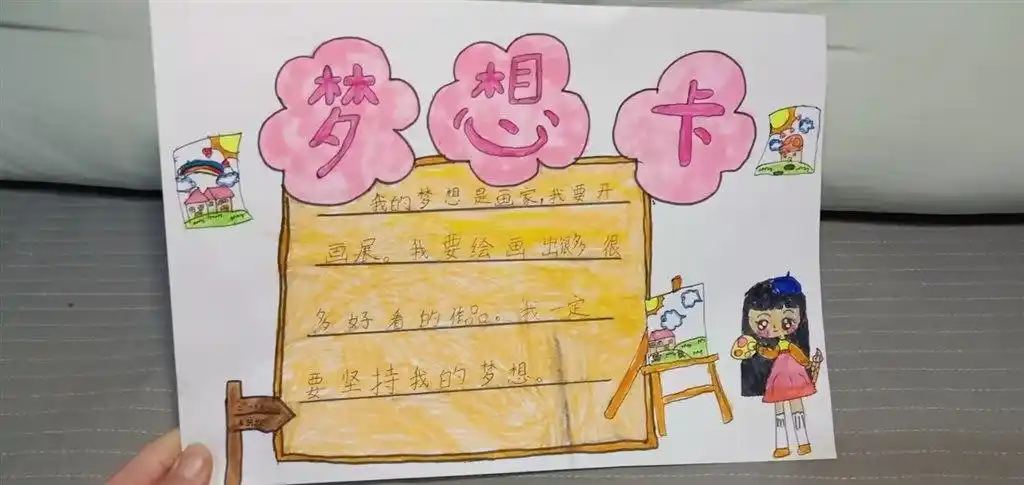 梦想卡
我的梦想是画家,我要开
画展。我要绘画出很多很
多好看的作品。我一定
要坚持我的梦想。